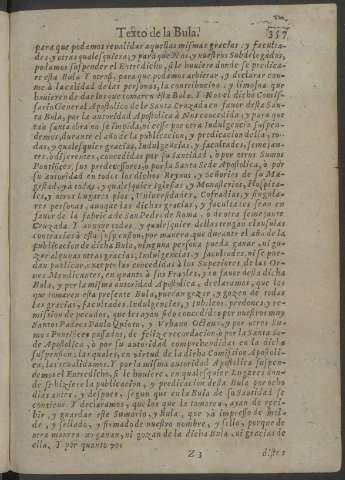 Texto de la Bula.
357
para que podamos revalidar aquellas mismas gracias, y faculta-
des, y otras qualesquiera, y para que Nos, y nuestros Subdelegados,
podamos suspender el Entredicho, si le huuiere donde se predica-
re esta Bula. Y otrosi, para que podamos arbitrar, y declarar con-
me à la calidad de las personas, la
limosna que
huuieren de dar los que tomaren esta Bula. Y Nos el dicho Comis-
sario General Apostolico de la Santa Cruzada en fauor desta San-
ta Bula, por la autoridad Apostolica à Nos concedida, y para que
tan santa obra no se impida, ni cesse por otra Indulgencia suspen-
demos, durante el año de la publicacion, y predicacion della, to-
das, y qualesquier gracias, Indulgencias, y facultades, semejan-
tes, ò diferentes, concedidas por su Santidad, ò por otros Sumos
Pontifices, sus predecessores, ò por la Santa Sede Apostolica, ò por
su autoridad en todos los dichos Reynos, y Señorios de su Ma-
gestad, y à todas, y qualesquier Iglesias, y Monasterios, Hospita-
les, y otros Lugares pios, Vniuersidades, Cofradias, y singula-
res personas, aunque las dichas gracias, y facultades sean en
fauor de la fabrica de San Pedro de Roma, ò de otra semejante
Cruzada. Y aunque todas, y qualesquier dellas tengan clausulas
contrarias à esta suspension, por manera que durante el año de la
publicacion de dicha Bula, ninguna persona pueda ganar, ni go-
zar algunas otras gracias, Indulgencias, y facultades, ni se pue-
dan publicar, excepto las concedidas à los Superiores de las Or-
denes Mendicantes, en quanto à sus Frayles, y en fauor desta dicha
Bula, y por la misma autoridad Apostolica, declaramos, que los
que tomaren esta presente Bula, puedan gozar, y gozen de todas
las gracias, facultades, Indulgencias, y Iubileos, perdones, y re-
mission de pecados, que les ayan sido concedidos por nuestros muy
Santos Padres Paulo Quinto, y Vrbano Octauo, y por otros Su-
mos Pontifices passados, de felice recordacion, ò por la Santa Se-
de Apostolica, ò por su autoridad comprehendidas en la dicha
suspension: las quales, en virtud de la dicha Comission Apostoli-
ca, las reualidamos. Y por la misma autoridad Apostolica suspen-
demos el Entredicho, si le huuiere, en qualesquier Lugares don-
de se hiziere la publicacion, y predicacion della Bula por ocho
dias antes, y despues, segun que en la Bula de su Santidad se
contiene. Y declaramos, que los que la tomaren, ayan de reci-
bir, y guardar este Sumario, y Bula, que và impresso de mol-
de, y sellado, y firmado de nuestro nombre, y sello, porque de
otra manera no ganan, ni gozan de la dicha Bula, ni gracias de
ella. Y por quanto vos
Z 3